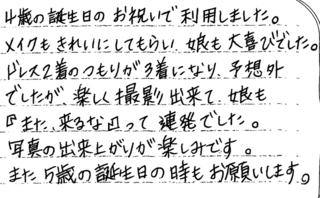 4歳の誕生日のお祝いで利用しました。
メイクもきれいにしてもらい、娘も大喜びでした。
ドレス2着のつもりが3着になり、予想外
でしたが、楽しく撮影出来て、娘も
『また、来るな』って連発でした。
写真の出来上がりが楽しみです。
また5歳の誕生日の時もお願いします。